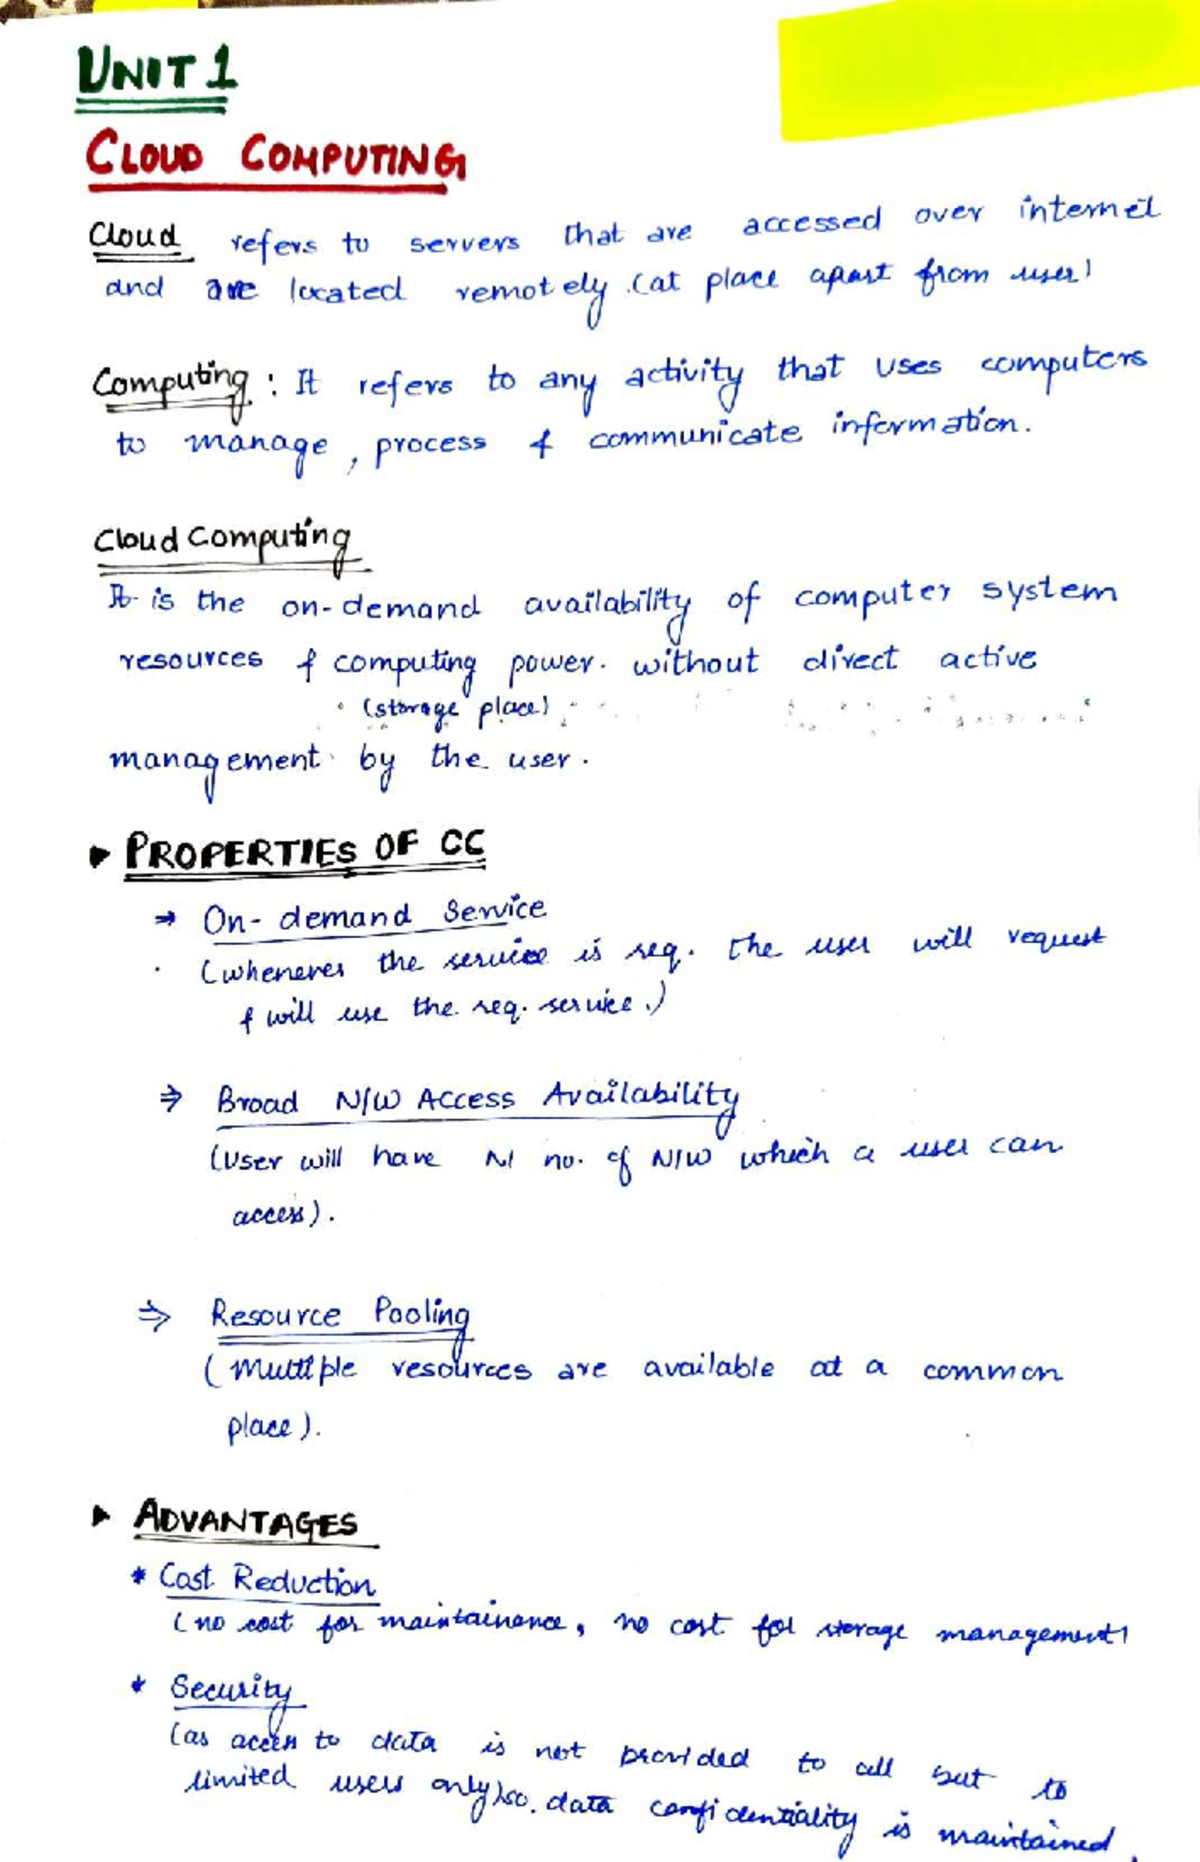 UNIT 1
CLOUD COMPUTING
Cloud refers to servers that are accessed over internet
and are located remotely (at place apart from user)
Computing : It refers to any activity that uses computers
to manage, process & communicate information.
Cloud Computing
It is the on-demand availability of computer system
resources & computing power. without direct active
(storage place)
management by the user.
PROPERTIES OF CC
⇒ On-demand Service
(whenever the service is req. the user will request
& will use the req. service.)
⇒ Broad N/W Access Availability
(user will have no. of N/W which a user can
access).
⇒ Resource Pooling
(Multiple resources are available at a common
place).
ADVANTAGES
* Cost Reduction
(no cost for maintainance, no cost for storage management)
* Security
(as access to data is not provided to all but to
limited users only) so. data confidentiality is maintained.